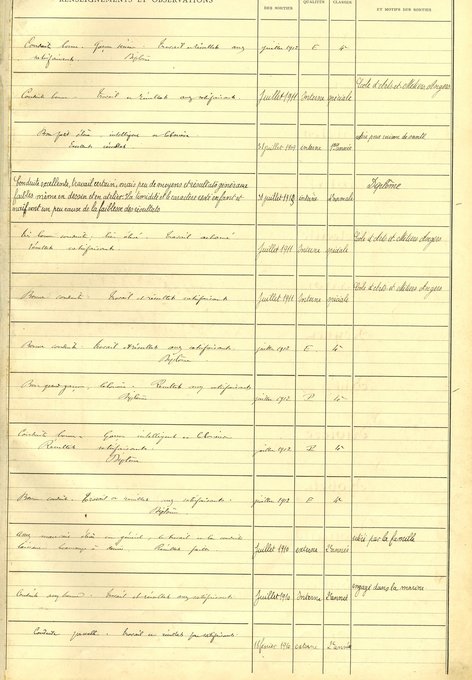 RENSEIGNEMENTS ET OBSERVATIONS
DES SORTIES
QUALITÉS
CLASSES
ET MOTIFS DES SORTIES
Conduite bonne. Travail et résultats assez
satisfaisants Diplôme
juillet 1912 E 4e
Conduite bonne Travail et résultats assez satisfaisants
Juillet 1911 Interne spéciale
Ecole d'Arts et Métiers Angers
Bon petit élève intelligent et laborieux.
Excellents résultats
interne
Conduite excellente, travail certain, mais peu de moyens et résultats généraux
faibles même en dessin et en atelier. La timidité et le caractère
sont un peu cause de la faiblesse des résultats
interne
Diplôme
Très bonne conduite Très élevé Travail acharné
Résultats satisfaisants
Juillet 1911 Interne spéciale
Ecole d'Arts et Métiers Angers
Bonne conduite Travail et résultats satisfaisants
Juillet 1911 Interne spéciale
Ecole d'Arts et Métiers Angers
Bonne conduite Travail et résultats assez satisfaisants.
Diplôme
juillet 1912 E. 4e
Bon grand garçon, laborieux. Résultats assez satisfaisants
Diplôme
juillet 1912 P 4e
Conduite bonne. Garçon intelligent et laborieux
Résultats satisfaisants.
Diplôme
juillet 1912 4e
Bonne conduite. Travail et résultats assez satisfaisants.
Diplôme
juillet 1912 E 4e
Assez mauvais élève en général, le travail et la conduite
laissaient beaucoup à désirer Résultats faibles
Juillet 1910 externe 2e année
retiré par la famille
Conduite assez bonne Travail et résultats assez satisfaisants
Juillet 1910 Interne 2e année
engagé dans la marine
Conduite passable. Travail et résultats peu satisfaisants.
février 1910 externe 2e année